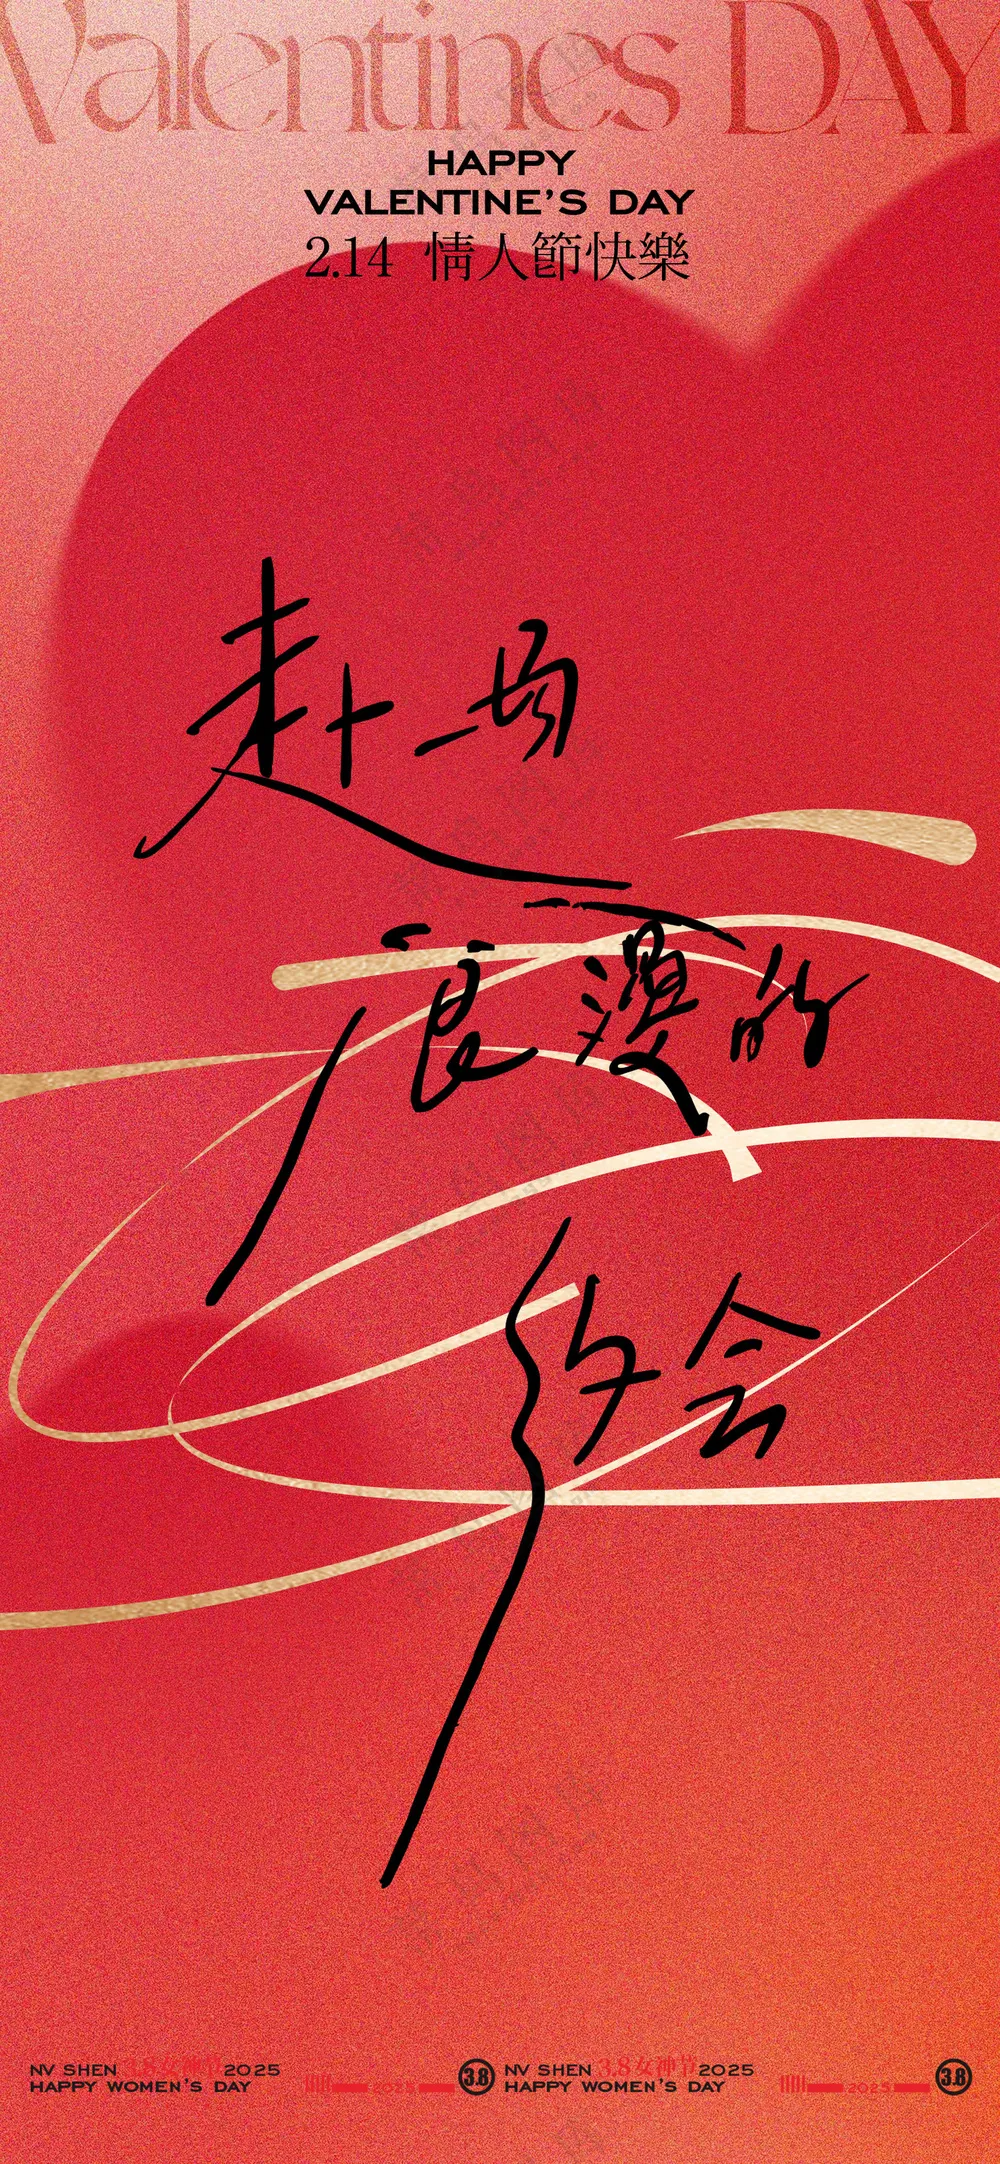 Valentines DAY
HAPPY
VALENTINE'S DAY
2.14 情人節快樂
赴一场
浪漫的
约会
NV SHEN 3.8女神节 2025
HAPPY WOMEN'S DAY
2025
3.8
NV SHEN 3.8女神节 2025
HAPPY WOMEN'S DAY
2025
3.8